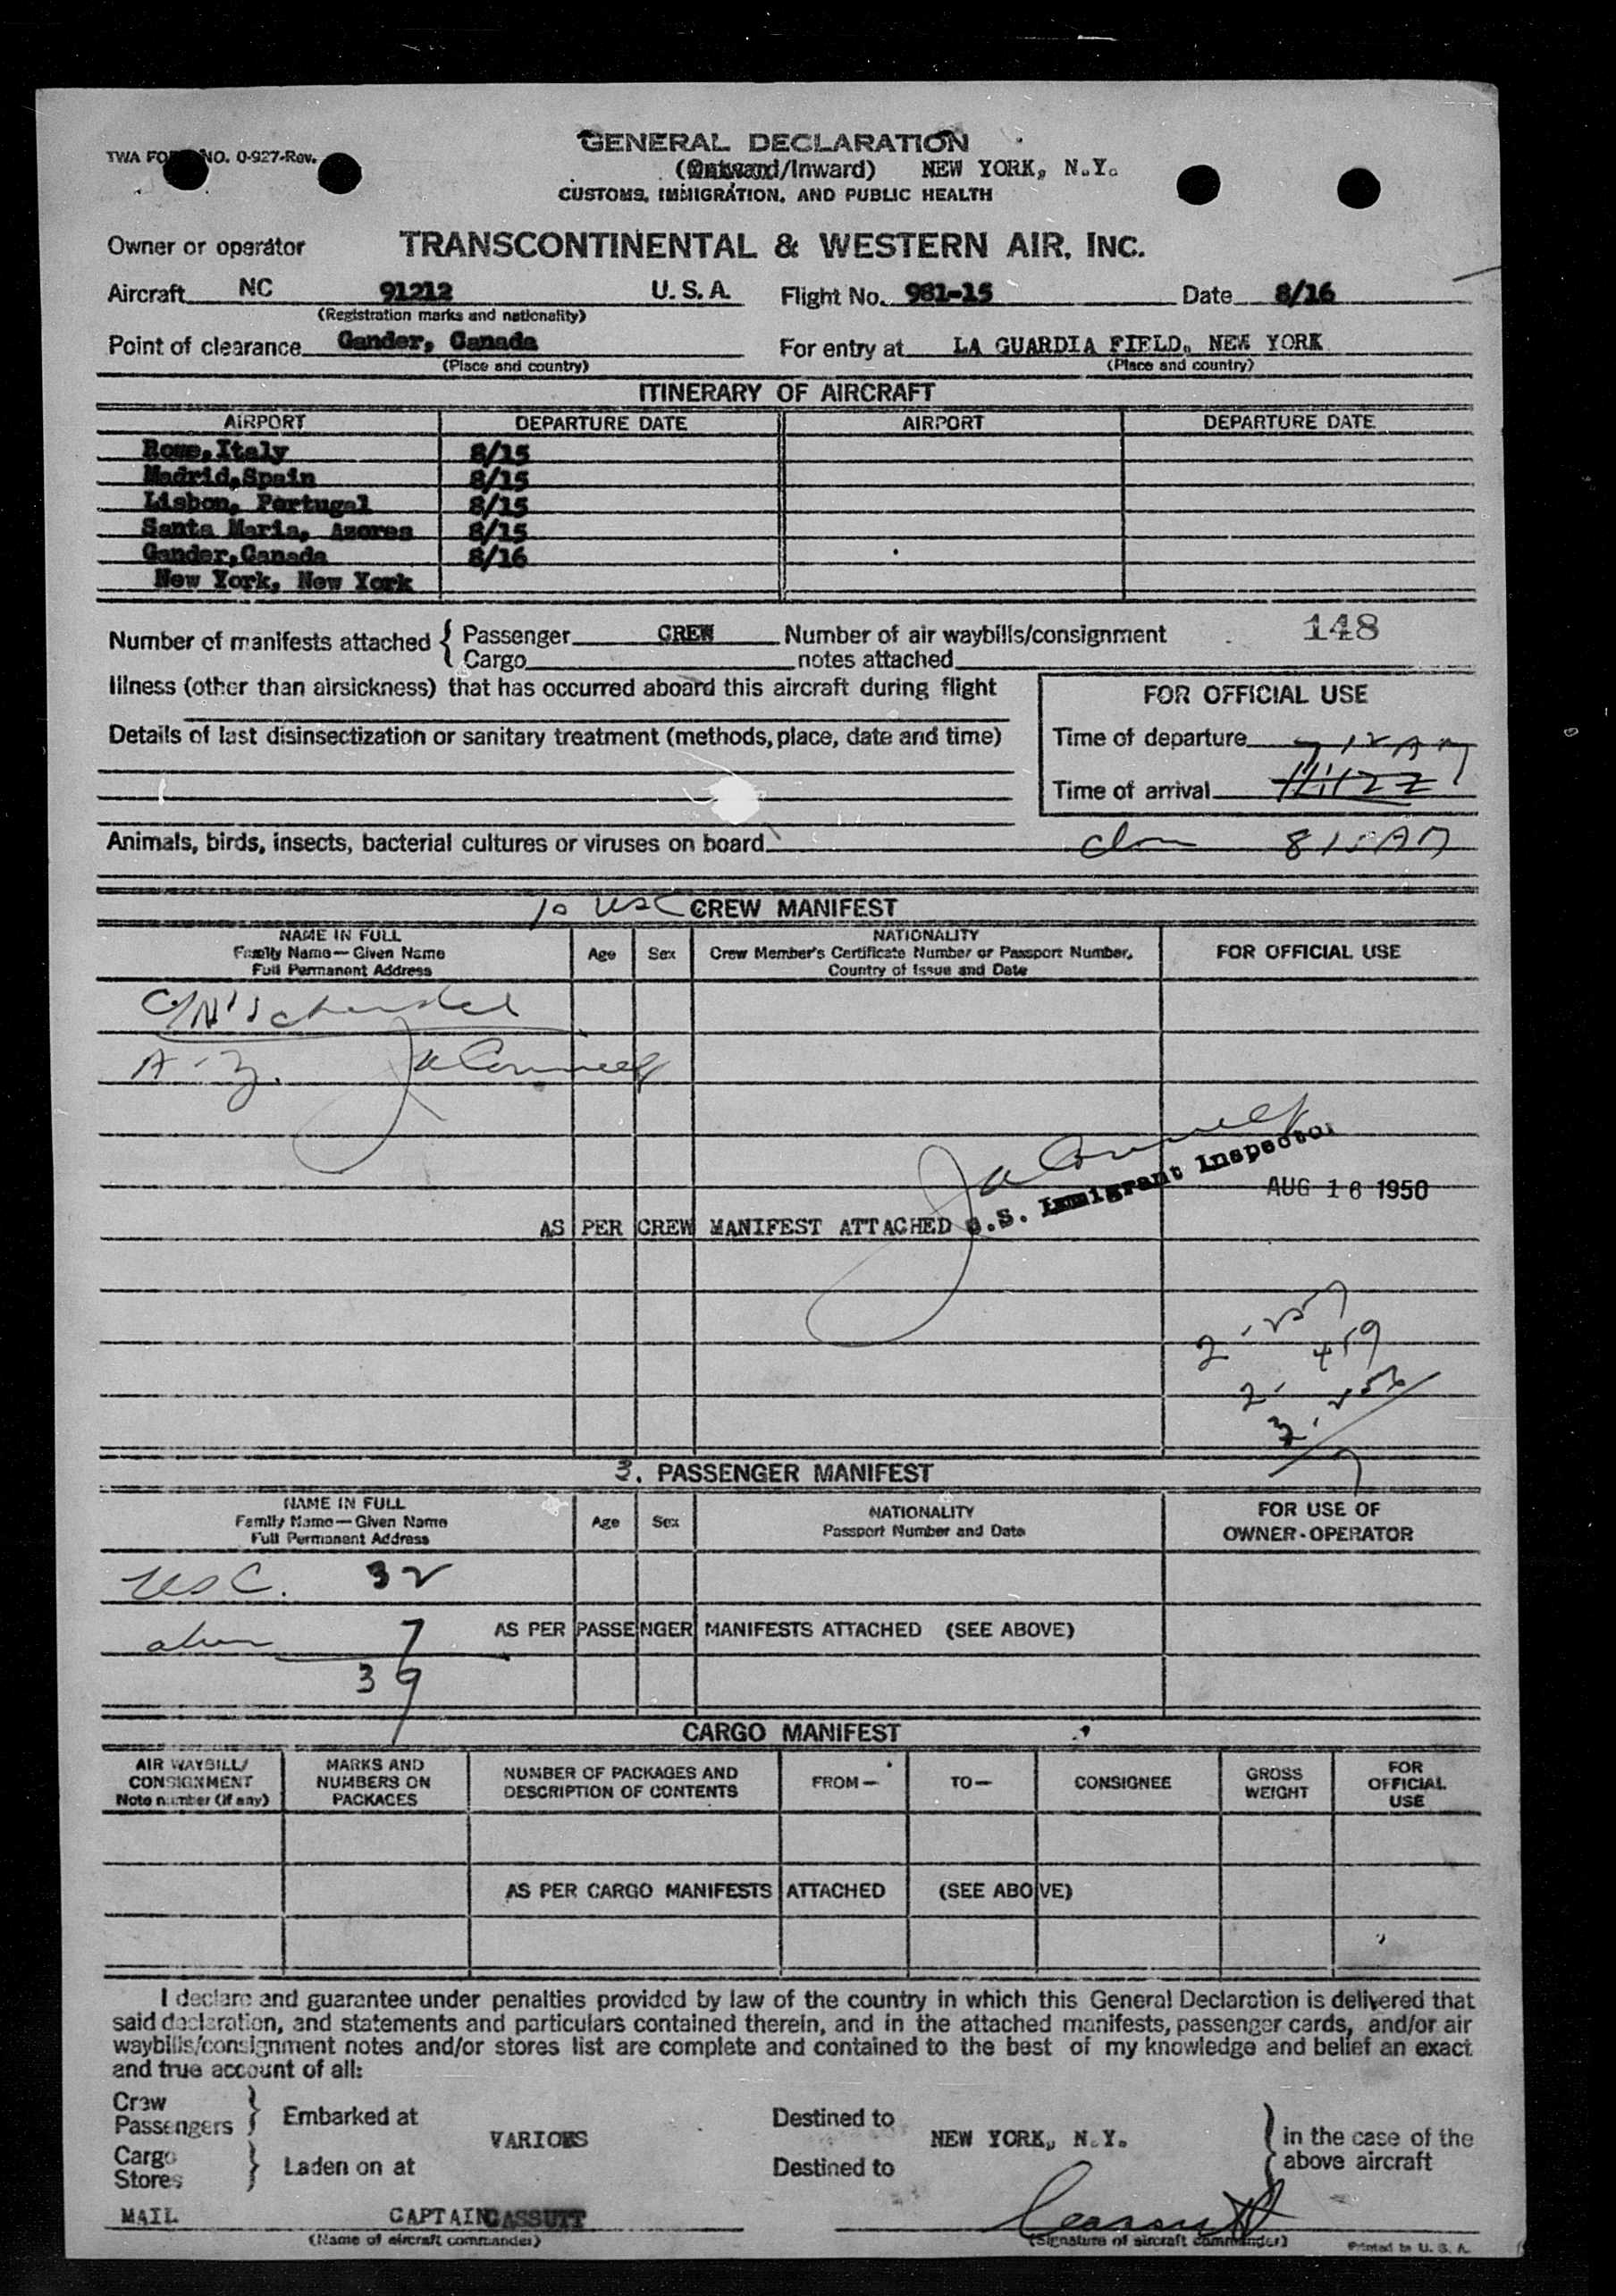 TWA FORM NO. 0-927-Rev.
GENERAL DECLARATION
(Outward/Inward) NEW YORK, N.Y.
CUSTOMS, IMMIGRATION, AND PUBLIC HEALTH
Owner or operator TRANSCONTINENTAL & WESTERN AIR, INC.
Aircraft NC 91212 U. S. A. Flight No. 981-15 Date 8/16
(Registration marks and nationality)
Point of clearance Gander, Canada For entry at LA GUARDIA FIELD, NEW YORK
(Place and country) (Place and country)
ITINERARY OF AIRCRAFT
AIRPORT DEPARTURE DATE AIRPORT DEPARTURE DATE
Rome, Italy 8/15
Madrid, Spain 8/15
Lisbon, Portugal 8/15
Santa Maria, Azores 8/15
Gander, Canada 8/16
New York, New York
Number of manifests attached { Passenger CREW Number of air waybills/consignment 148
Cargo notes attached
Illness (other than airsickness) that has occurred aboard this aircraft during flight
FOR OFFICIAL USE
Details of last disinsectization or sanitary treatment (methods, place, date and time)
Time of departure 712 AM
Time of arrival
Animals, birds, insects, bacterial cultures or viruses on board 815 AM
10 USC CREW MANIFEST
NAME IN FULL
Family Name—Given Name
Full Permanent Address
Age Sex
NATIONALITY
Crew Member's Certificate Number or Passport Number,
Country of Issue and Date
FOR OFFICIAL USE
U.S. Immigrant Inspector
AUG 16 1950
AS PER CREW MANIFEST ATTACHED
3. PASSENGER MANIFEST
NAME IN FULL
Family Name—Given Name
Full Permanent Address
Age Sex
NATIONALITY
Passport Number and Date
FOR USE OF
OWNER-OPERATOR
USC. 32
alien 7
AS PER PASSENGER MANIFESTS ATTACHED (SEE ABOVE)
39
CARGO MANIFEST
AIR WAYBILL/
CONSIGNMENT
Note number (if any)
MARKS AND
NUMBERS ON
PACKAGES
NUMBER OF PACKAGES AND
DESCRIPTION OF CONTENTS
FROM—
TO—
CONSIGNEE
GROSS
WEIGHT
FOR
OFFICIAL
USE
AS PER CARGO MANIFESTS ATTACHED (SEE ABOVE)
I declare and guarantee under penalties provided by law of the country in which this General Declaration is delivered that
said declaration, and statements and particulars contained therein, and in the attached manifests, passenger cards, and/or air
waybills/consignment notes and/or stores list are complete and contained to the best of my knowledge and belief an exact
and true account of all:
Crew
Passengers } Embarked at Destined to
VARIOUS NEW YORK, N.Y. } in the case of the
Cargo above aircraft
Stores } Laden on at Destined to
MAIL CAPTAIN CASSUTT Cassutt
(Name of aircraft commander) (Signature of aircraft commander)
Printed in U. S. A.